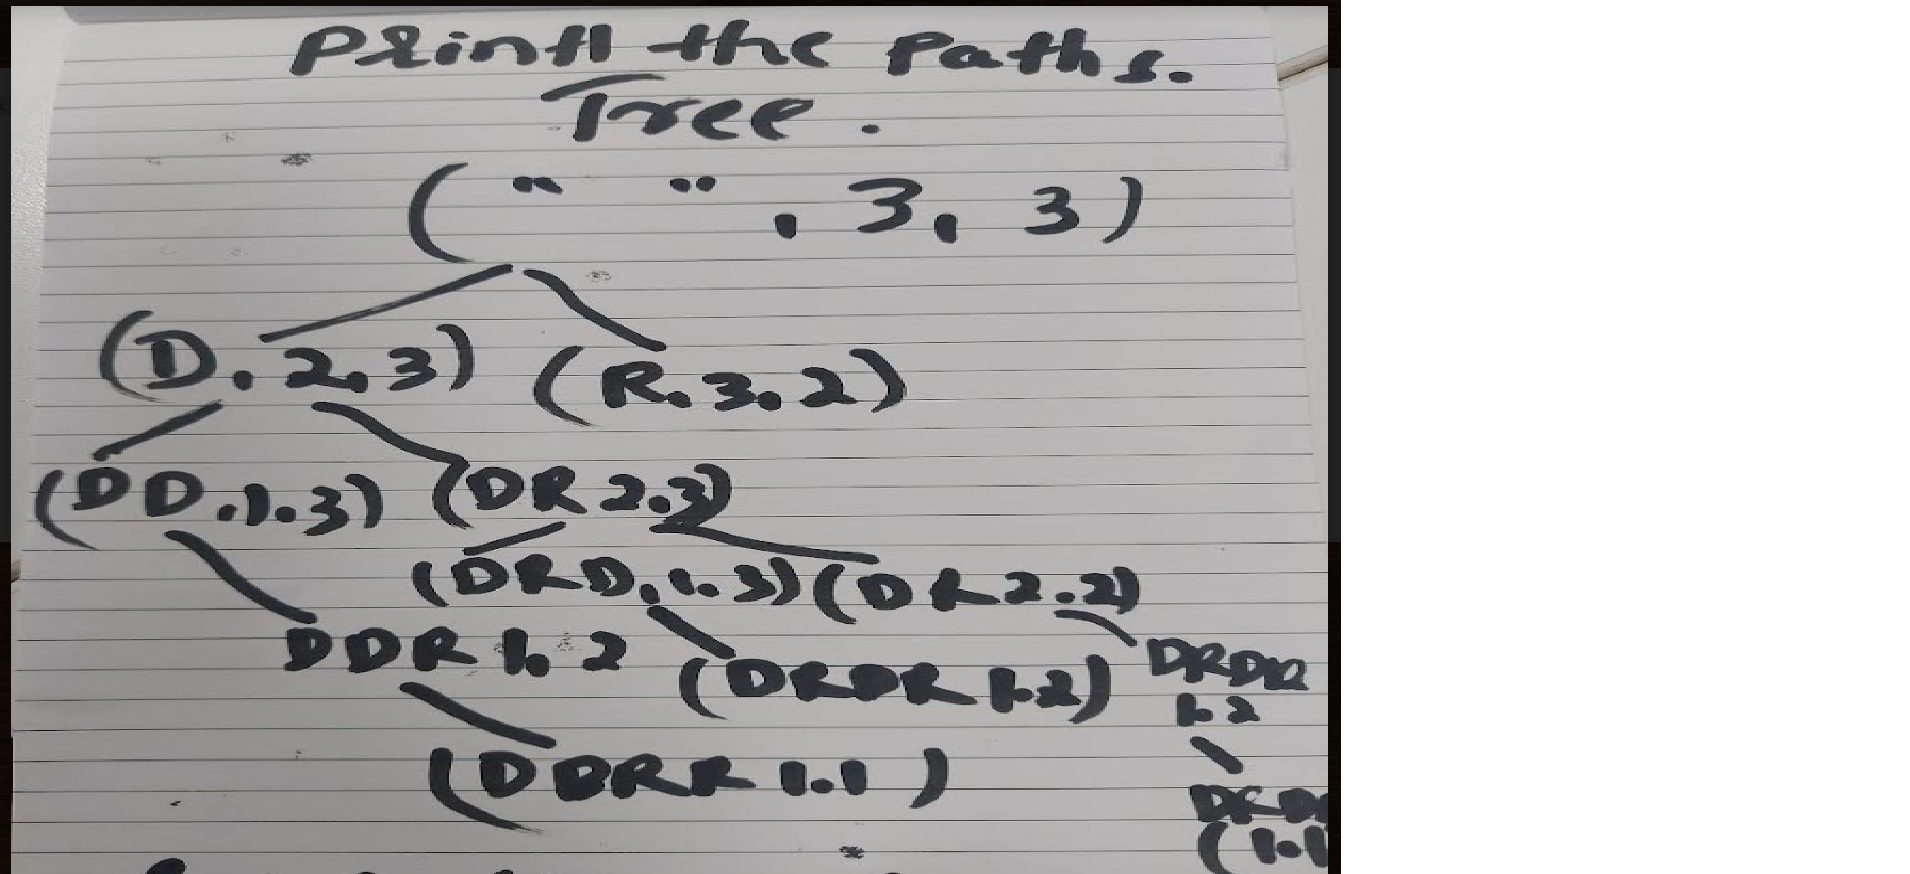 Print the Paths.
Tree.
(" ", 3, 3)
(D, 2, 3) (R, 3, 2)
(DD, 1, 3) (DR 2, 3)
(DRD, 1, 3) (DR 2, 2)
DDR 1, 2 (DRDR 1, 2) DRDR
1, 2
(DDRR 1, 1)
(1,1